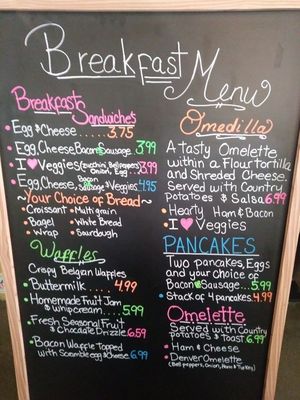 Breakfast Menu
Breakfast
Sandwiches
Egg & Cheese ..... 3.75
Egg, Cheese, Bacon or Sausage 3.99
I ♥ Veggies (Zucchini, Bell peppers, Onion, Egg) 3.99
Egg, Cheese, Bacon or Sausage & Veggies 4.95
~Your Choice of Bread~
Croissant Multigrain
Bagel White Bread
Wrap Sourdough
Waffles
Crispy Belgian Waffles
Buttermilk ..... 4.99
Homemade Fruit Jam
& Whip cream ..... 5.99
Fresh Seasonal Fruit
& Chocolate Drizzle 6.59
Bacon Waffle Topped
with Scramble egg & Cheese 6.99
Omedilla
A tasty Omelette
within a Flour tortilla
and Shredded Cheese.
Served with Country
Potatoes & Salsa 6.99
Hearty Ham & Bacon
I ♥ Veggies
PANCAKES
Two pancakes, Eggs
and your choice of
Bacon or Sausage ..... 5.99
Stack of 4 pancakes. 4.99
Omelette
Served with Country
potatoes & Toast 6.99
Ham & Cheese
Denver Omelette
(Bell peppers, Onion, Ham & Turkey)